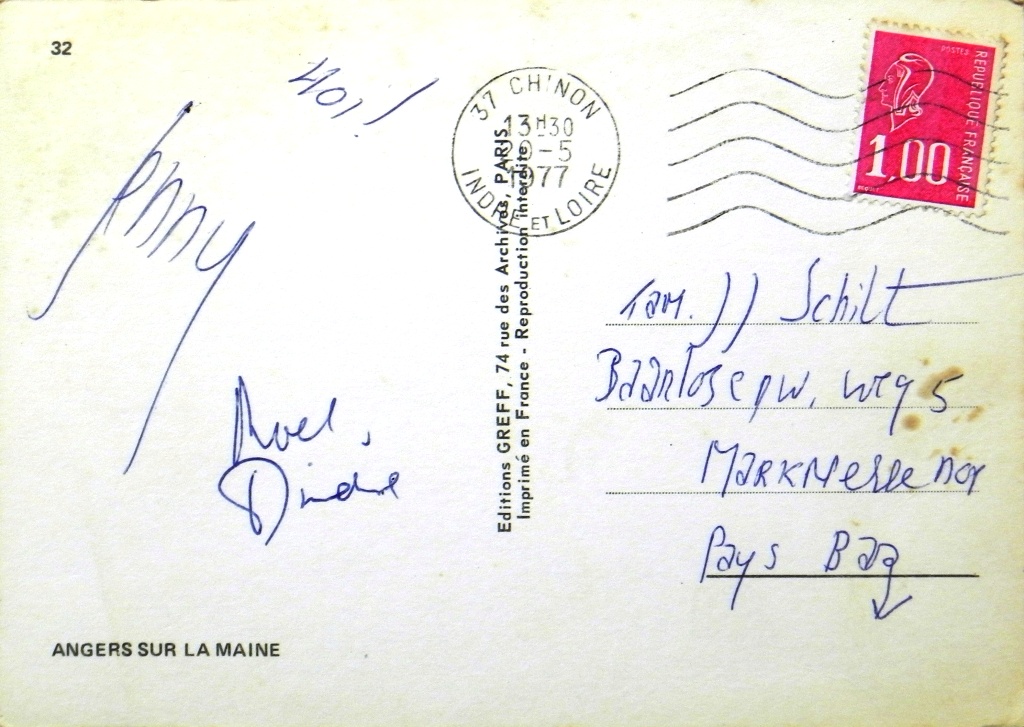 32
HOI!
Anny
Roel,
Dineke
ANGERS SUR LA MAINE
Editions GREFF, 74 rue des Archives, PARIS
Imprimé en France - Reproduction interdite
37 CHINON
13H30
-5
1977
INDRE ET LOIRE
POSTES
REPUBLIQUE FRANCAISE
1,00
Fam. JJ Schilt
weg 5
Marknesse NOP
Pays Bas